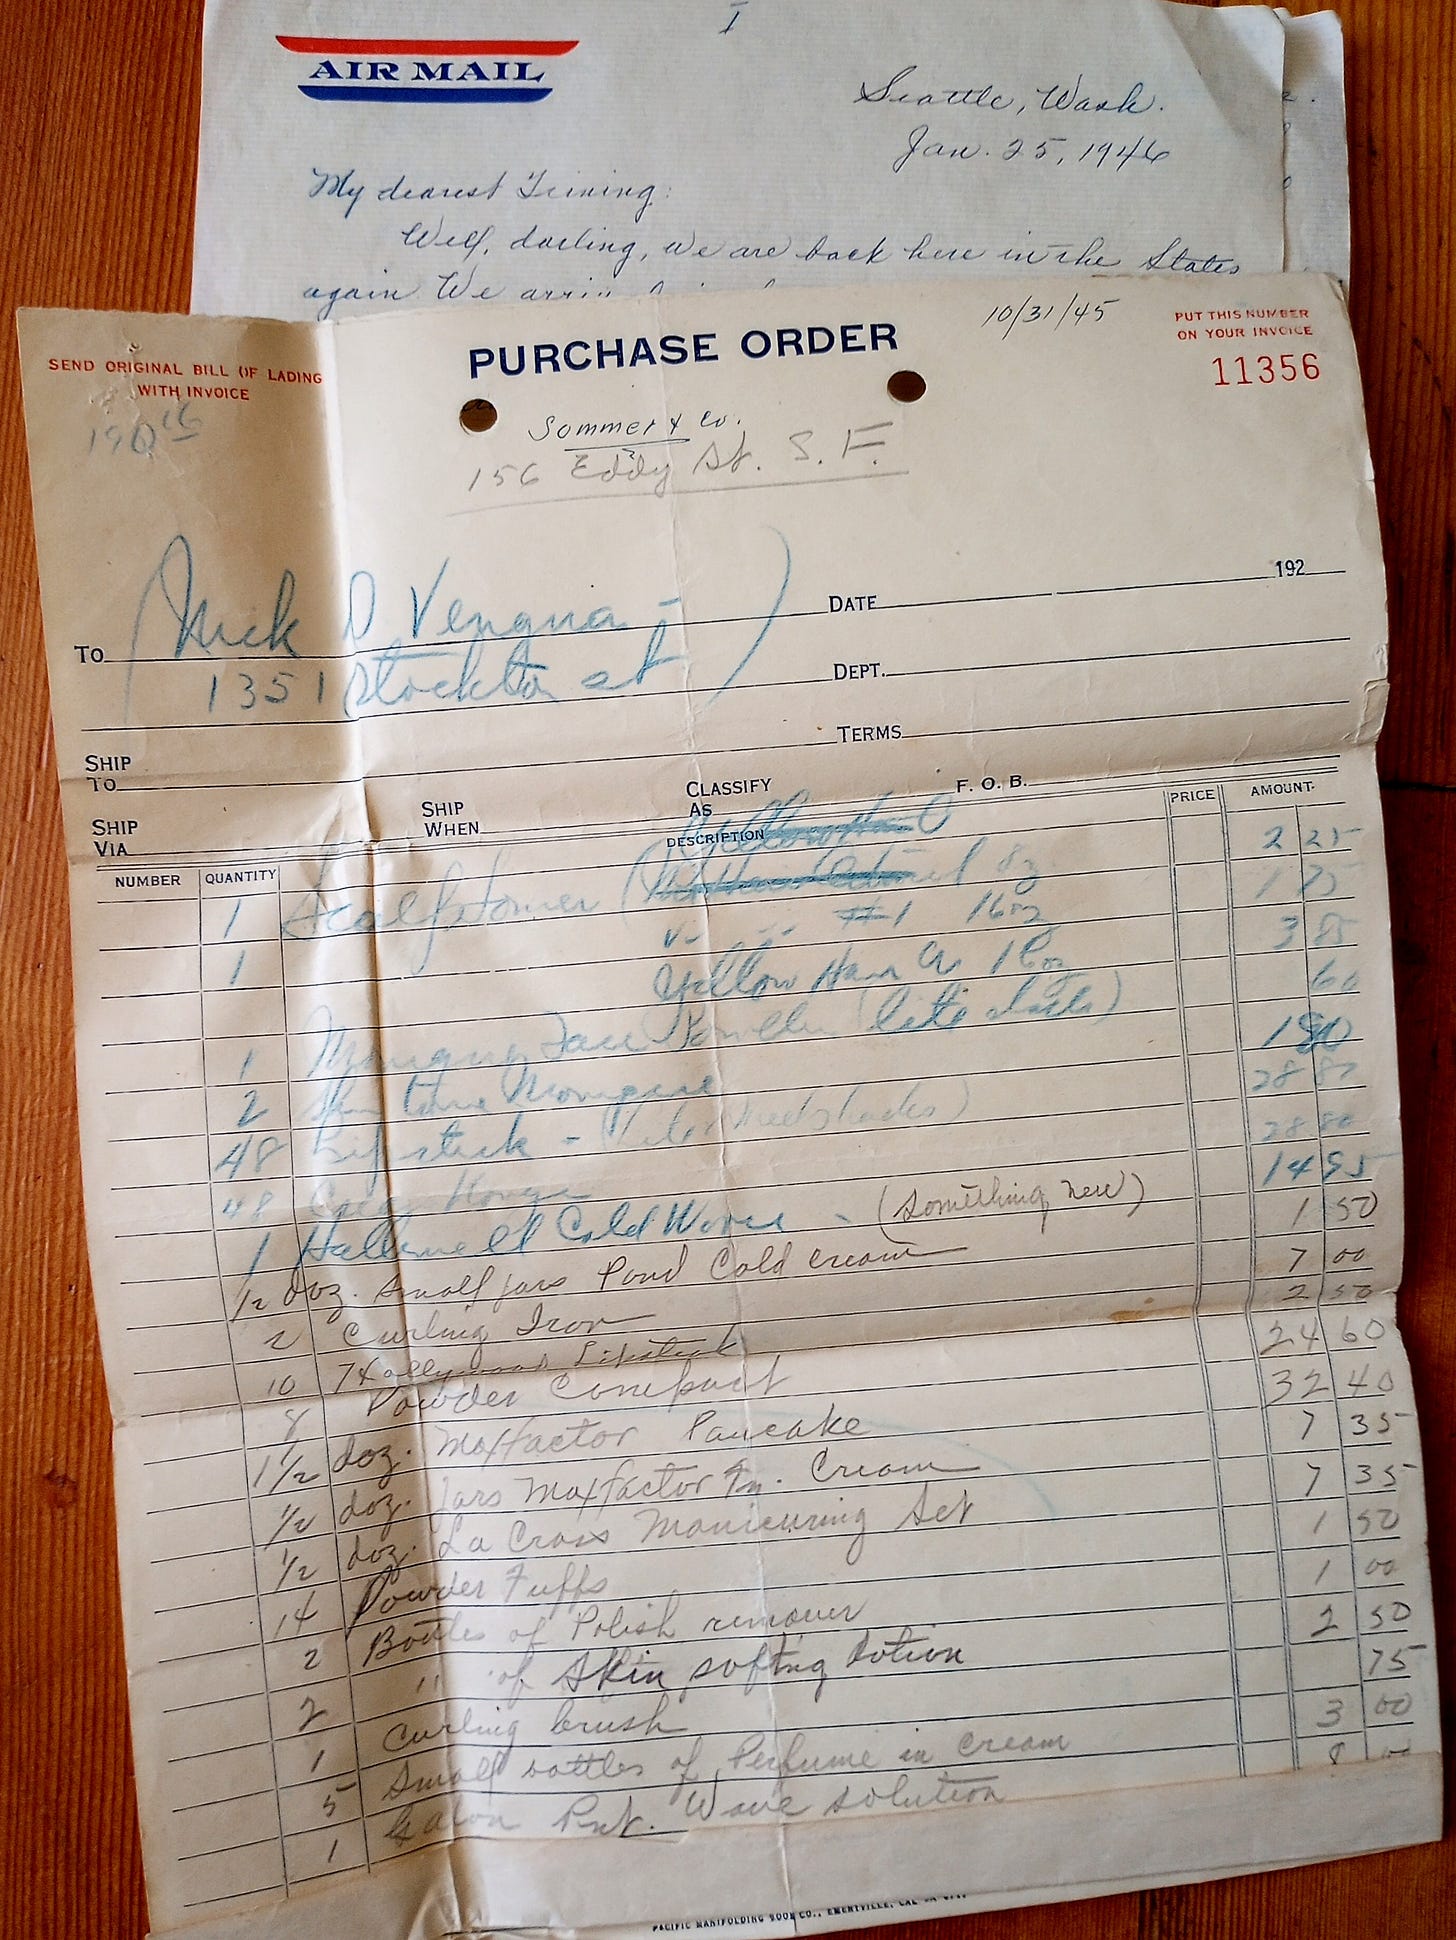 I
AIR MAIL
Seattle, Wash.
Jan. 25, 1946
My dearest Trining:
Well, darling, we are back here in the States
again. We
SEND ORIGINAL BILL OF LADING
WITH INVOICE
PURCHASE ORDER
10/31/45
PUT THIS NUMBER
ON YOUR INVOICE
11356
Sommer & Co.
156 Eddy St. S. F.
TO Nick D Vengua -
1351 Stockton st
DATE 192
DEPT.
TERMS
SHIP TO
SHIP VIA
SHIP WHEN
CLASSIFY AS
F. O. B.
NUMBER QUANTITY DESCRIPTION PRICE AMOUNT
1 8 oz 2 25
1 #1 16 oz 1 75
Yellow 16 oz 3 85
1 Face Powder 60
2 1 80
48 Lipstick - 28 80
48 28 80
1 Cold Wave - (something new) 14 95
1/2 doz. small jars Pond Cold cream 1 50
2 Curling Iron 7 00
10 Hollywood Lipstick 2 50
8 Powder Compact 24 60
1 1/2 doz. Maxfactor Pancake 32 40
1/2 doz. Jars Maxfactor Cream 7 35
1/2 doz. La Cross Manicuring Set 7 35
14 Powder Fuffs 1 50
2 Bottles of Polish remover 1 00
2 " of Skin softng Lotion 2 50
1 Curling brush 75
5 Small bottles of Perfume in cream 3 00
1 Galon Wave solution
PACIFIC MANIFOLDING BOOK CO., EMERYVILLE, CAL